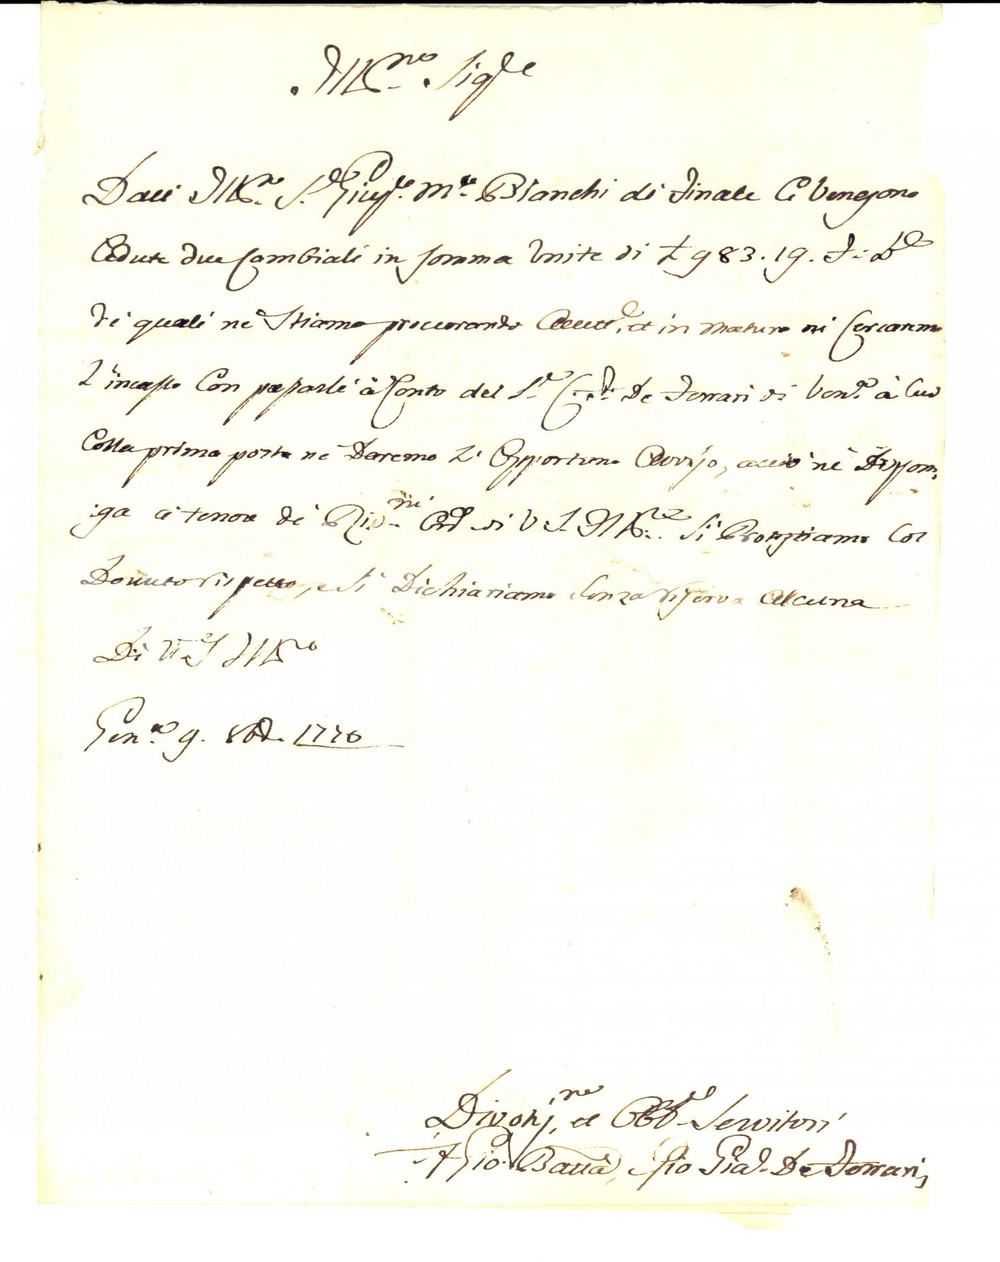 Ill.mo Sig.re
Dall Ill.mo S.r Gius.e M.a Bianchi di Finale Ci Vengono
Cedute due Cambiali in somma Unite di £ 983.19. F. B.
di quali nè Stiamo proccurando et in Maturo ni Cercaremo
L'incasso Con passarlè à Conto del S.r De Ferrari di Ven.a à Cui
Colla prima posta nè Daremo L'Opportuno Avviso, acciò nè Dispon,
ga à tenore di Riv.mi di V S. Ill.ma Si Protestiamo Col
Dovuto rispetto, e Si Dichiariamo Senza riserva Alcuna
Di V.S. Ill.ma
Gen.a 9. 8bre 1776
Divotis.mi et Obb.mi Servitori
Gio. Batta, e fio Gia. De Ferrari